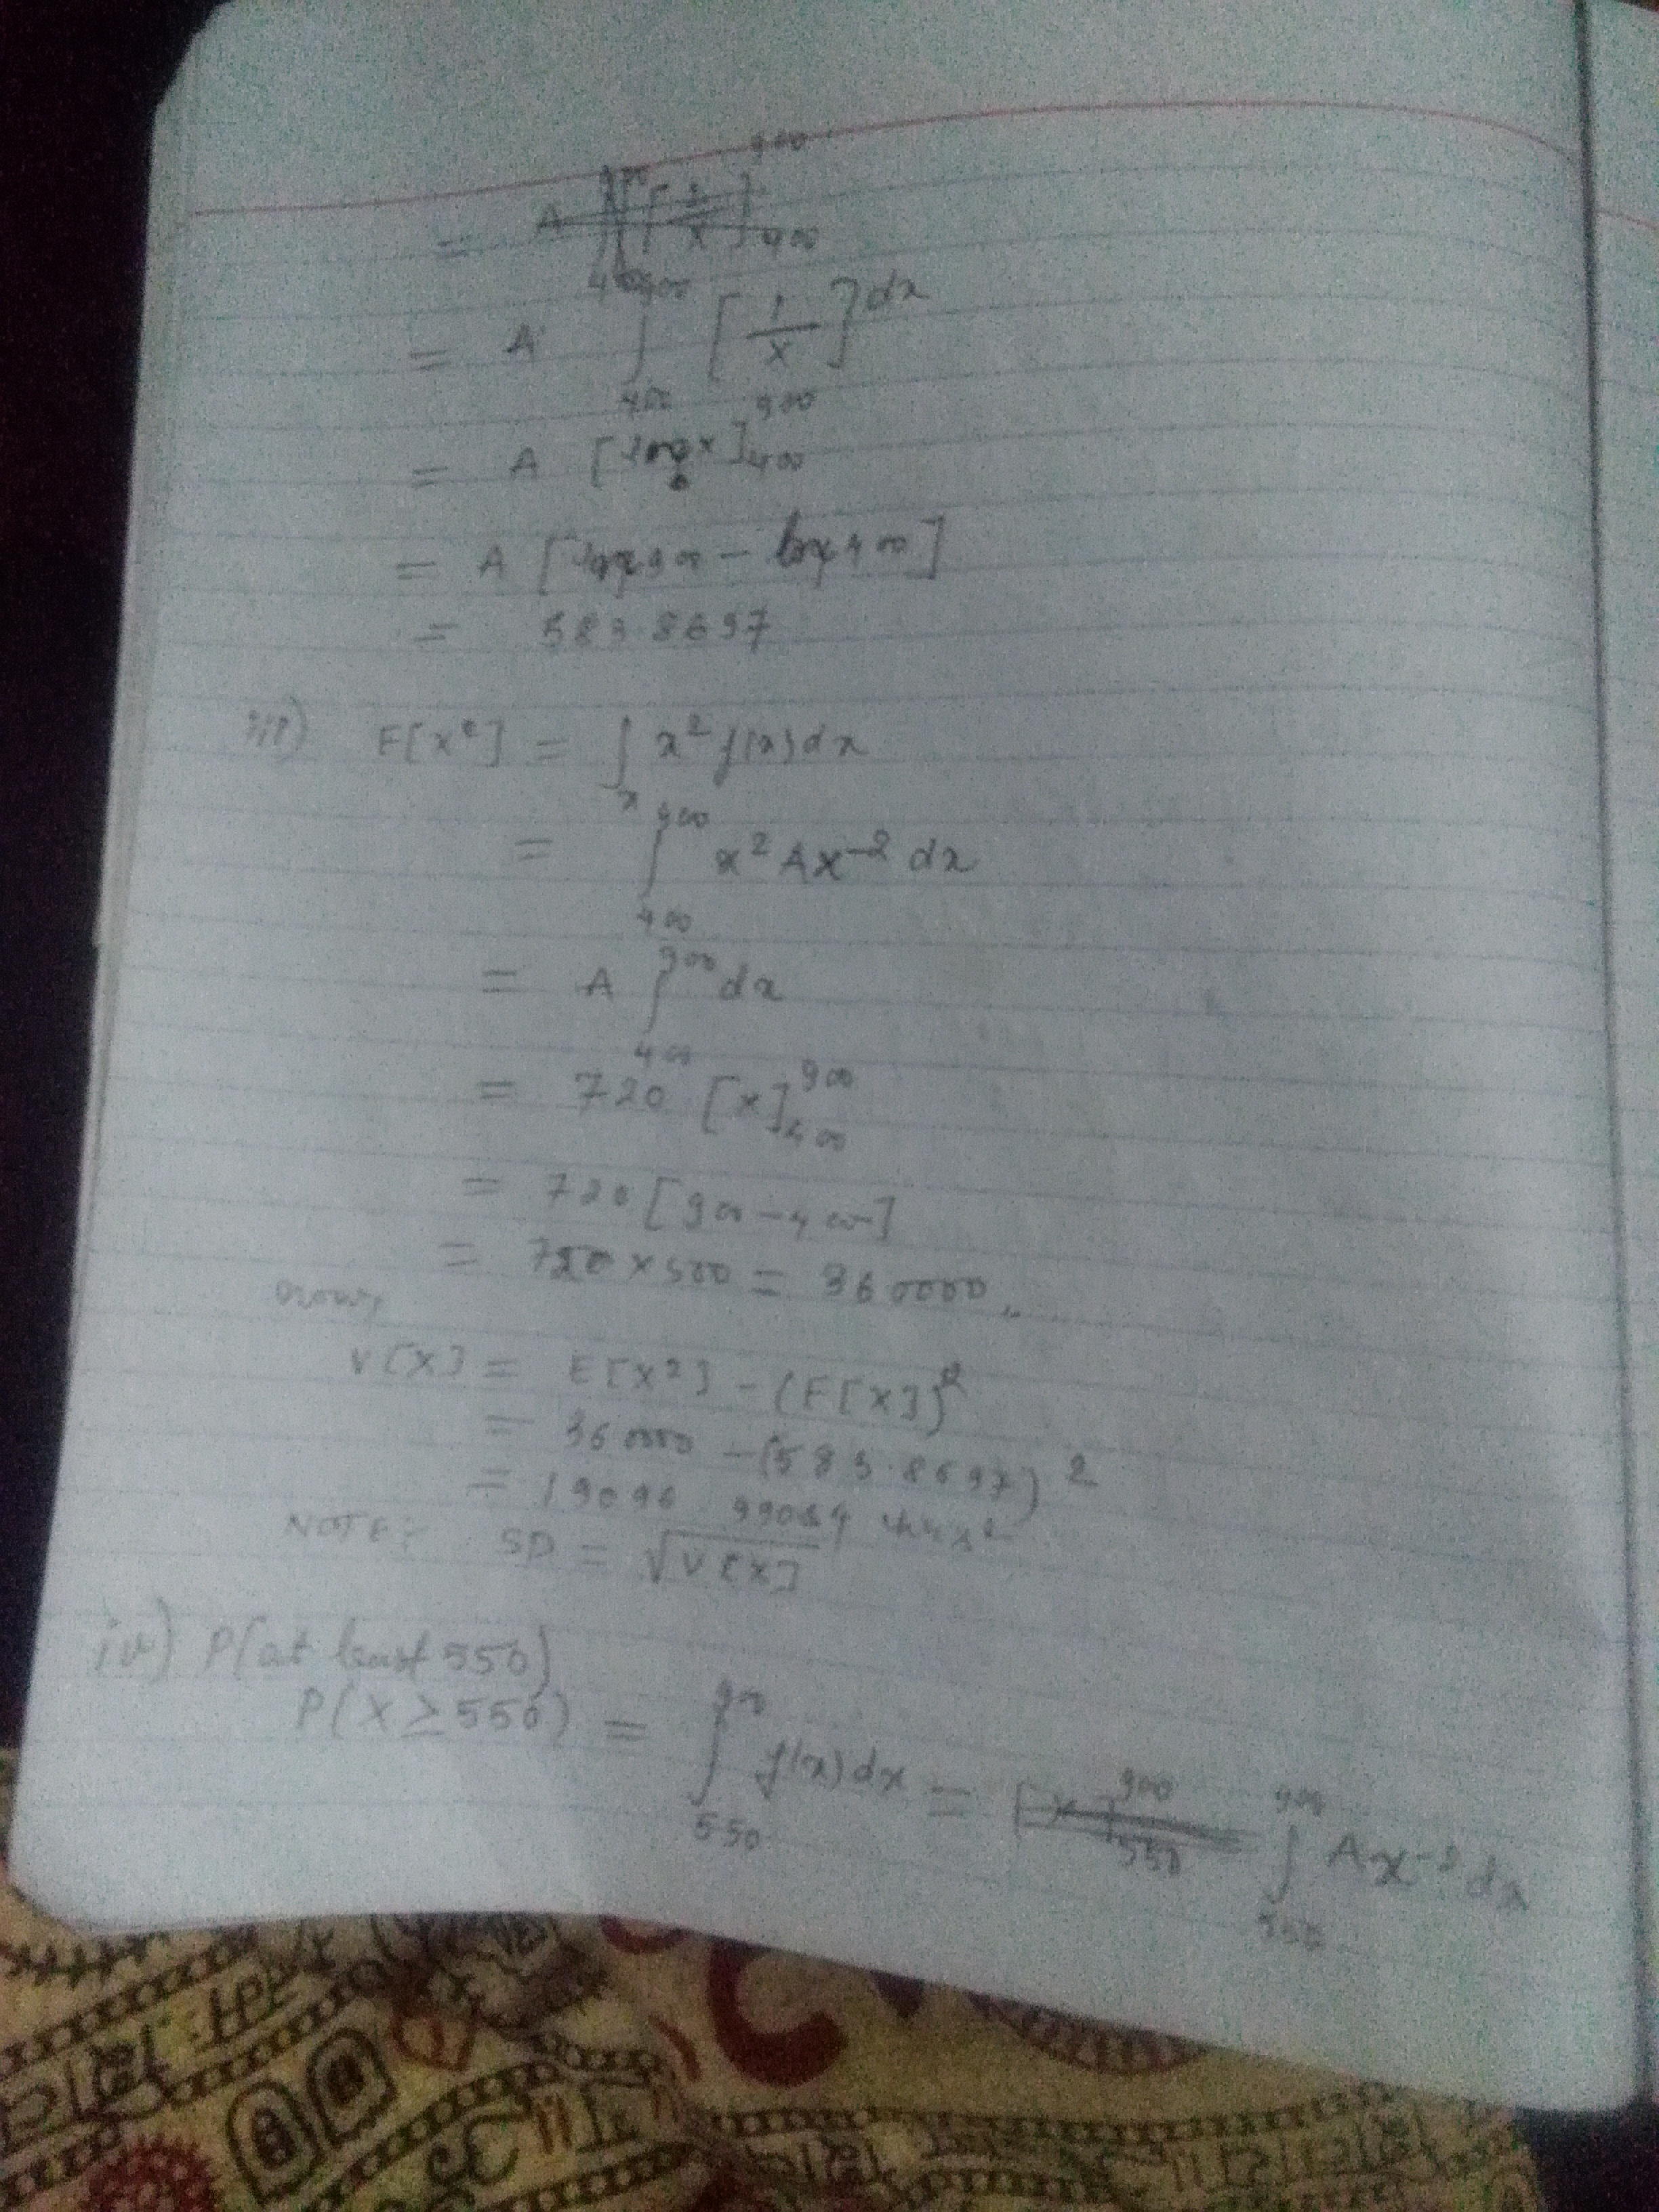 = A ∫ [1/x] dx
400 900
= A [log x] 400 900
= A [log 900 - log 400]
= 583.8697
iii) E[x²] = ∫ x² f(x) dx
x
= ∫ 400 900 x² A x⁻² dx
= A ∫ 400 900 dx
= 720 [x] 400 900
= 720 [900 - 400]
= 720 x 500 = 360000
V[X] = E[X²] - (E[X])²
= 360000 - (583.8697)²
= 19096.
NOTE:- SD = √V[X]
iv) P(at least 550)
P(X ≥ 550) = ∫ 550 900 f(x) dx = ∫ 550 900 A x⁻² dx